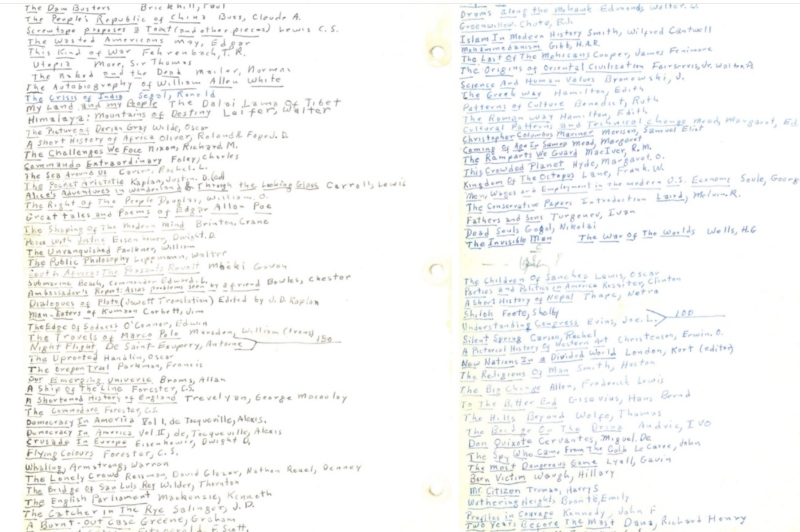 The Dam Busters Brickhill, Paul
The People's Republic of China Buss, Claude A.
Screwtape proposes a Toast (and other pieces) Lewis C.S.
The Wasted Americans May, Edgar
This Kind of War Fehrenbach, T.R.
Utopia More, Sir Thomas
The Naked and the Dead Mailer, Norman
The Autobiography of William Allen White
The Crisis of India Segal, Ronald
My Land and my People The Dalai Lama Of Tibet
Himalaya: Mountains of Destiny Laifer, Walter
The Picture of Dorian Gray Wilde, Oscar
A Short History of Africa Oliver, Roland & Fage, J.D.
The Challenges We Face Nixon, Richard M.
Commando Extraordinary Foley, Charles
The Sea Around Us Carson, Rachel L.
The Pocket Aristotle Kaplan, Justin D.
Alice's Adventures in Wonderland & Through the Looking Glass Carroll, Lewis
The Right Of The People Douglas, William, O.
Great tales and Poems of Edgar Allan Poe
The Shaping Of The Modern Mind Brinton, Crane
Eisenhower, Dwight D.
The Unvanquished Faulkner, William
The Public Philosophy Lippmann, Walter
South Africa: The Peasants Revolt Mbeki Govan
Submarine Beach, Commander Edward L.
Ambassador's Report: Asia's problems seen by a friend Bowles, Chester
Dialogues of Plato (Jowett Translation) Edited by J.D Kaplan
Man-Eaters of Kumaon Corbett, Jim
The Edge Of Sadness O'Connor, Edwin
The Travels of Marco Polo Marsden, William (trans)
Night Flight De Saint-Exupery, Antoine 150
The Uprooted Handlin, Oscar
The Oregon Trail Parkman, Francis
Our Emerging Universe Broms, Allan
A Ship Of The Line Forester, C.S.
A Shortened History of England Trevelyan, George Macauley
The Commodore Forester, C.S.
Democracy In America Vol I, de Tocqueville, Alexis.
Democracy In America Vol II, de, Tocqueville, Alexis
Crusade In Europe Eisenhower, Dwight D.
Flying Colours Forester, C.S.
Whaling, Armstrong, Warren
The Lonely Crowd Reisman, David Glazer, Nathan Reuel, Denney
The Bridge of San Luis Rey Wilder, Thornton
The English Parliament Mackenzie, Kenneth
The Catcher In The Rye Salinger, J.D.
A Burnt-Out Case Greene, Graham
F. Scott,
Drums Along the Mohawk Edmonds, Walter.
Greenwillow. Chute,
Islam In Modern History Smith, Wilfred Cantwell
Mohammedanism Gibb, H.A.R.
The Last Of The Mohicans Cooper, James Fenimore
The Origins of Oriental Civilization Fairservis, Jr. Walter A
Science And Human Values Bronowski, J.
The Greek Way Hamilton, Edith
Patterns of Culture Benedict, Ruth
The Roman Way Hamilton, Edith
Cultural Patterns and Technical Change Mead, Margaret, Ed
Christopher Columbus Mariner Morison, Samuel Eliot
Coming Of Age In Samoa Mead, Margaret
The Ramparts We Guard MacIver, R.M.
This Crowded Planet Hyde, Margaret, O.
Kingdom Of The Octopus Lane, Frank. W.
Men, Wages and Employment in The modern U.S. Economy Soule, George
The Conservative Papers Introduction Laird, Melvin R.
Fathers and Sons Turgenev, Ivan
Dead Souls Gogol, Nikolai
The Invisible Man The War Of The Worlds Wells, HG
The Children Of Sanchez Lewis, Oscar
Parties and Politics in America Rossiter, Clinton
A Short History of Nepal Thapa, Netra
Shiloh Foote, Shelby
Understanding Congress Evins, Joe. L. 100
Silent Spring Carson, Rachel
A Pictorial History Of Western Art Christensen, Erwin. O.
New Nations In a Divided World London, Kurt (editor)
The Religions Of Man Smith, Huston
The Big Change Allen, Frederick Lewis
To The Bitter End Gisevius, Hans Bernd
The Hills Beyond Wolfe, Thomas
The Bridge On The Drina Andric, IVO
Don Quixote Cervantes, Miguel. De
The Spy Who Came From The Cold Le Carre, John
The Most Dangerous Game Lyall, Gavin
Born Victim Waugh, Hillary
Mr Citizen Truman, Harry S
Wuthering Heights, Bronte, Emily
Profiles in Courage Kennedy, John F
Two Years Before The Mast Dana, Richard Henry